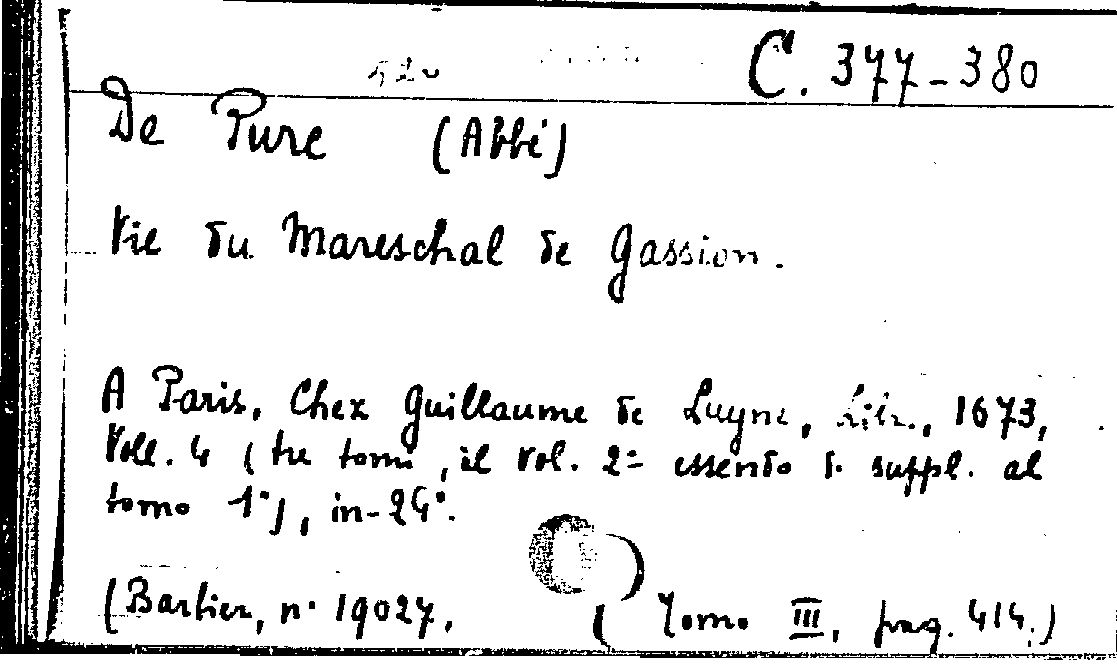 C. 377-380
De Pure (Abbé)
Vie du Mareschal de Gassion.
A Paris, Chez Guillaume de Luyne, Libr., 1673,
Voll. 4 (tre tomi, il vol. 2º essendo di suppl. al
tomo 1º), in-24º.
(Barbier, nº 19027, Tomo III, pag. 414.)